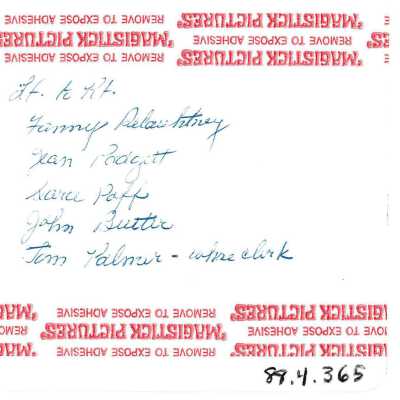 REMOVE TO EXPOSE ADHESIVE "MAGISTICK PICTURES" REMOVE TO EXPOSE ADHESIVE
"MAGISTICK PICTURES" REMOVE TO EXPOSE ADHESIVE "MAGISTICK PICTURES"
Lt. to Rt.
Fanny Delaughtney
Jean Padgett
Poff
John Butter
Tom Palmer -
REMOVE TO EXPOSE ADHESIVE "MAGISTICK PICTURES"
"MAGISTICK PICTURES" REMOVE TO EXPOSE ADHESIVE "MAGISTICK PICTURES" REMOVE
REMOVE TO EXPOSE ADHESIVE "MAGISTICK PICTURES"
88.4.365